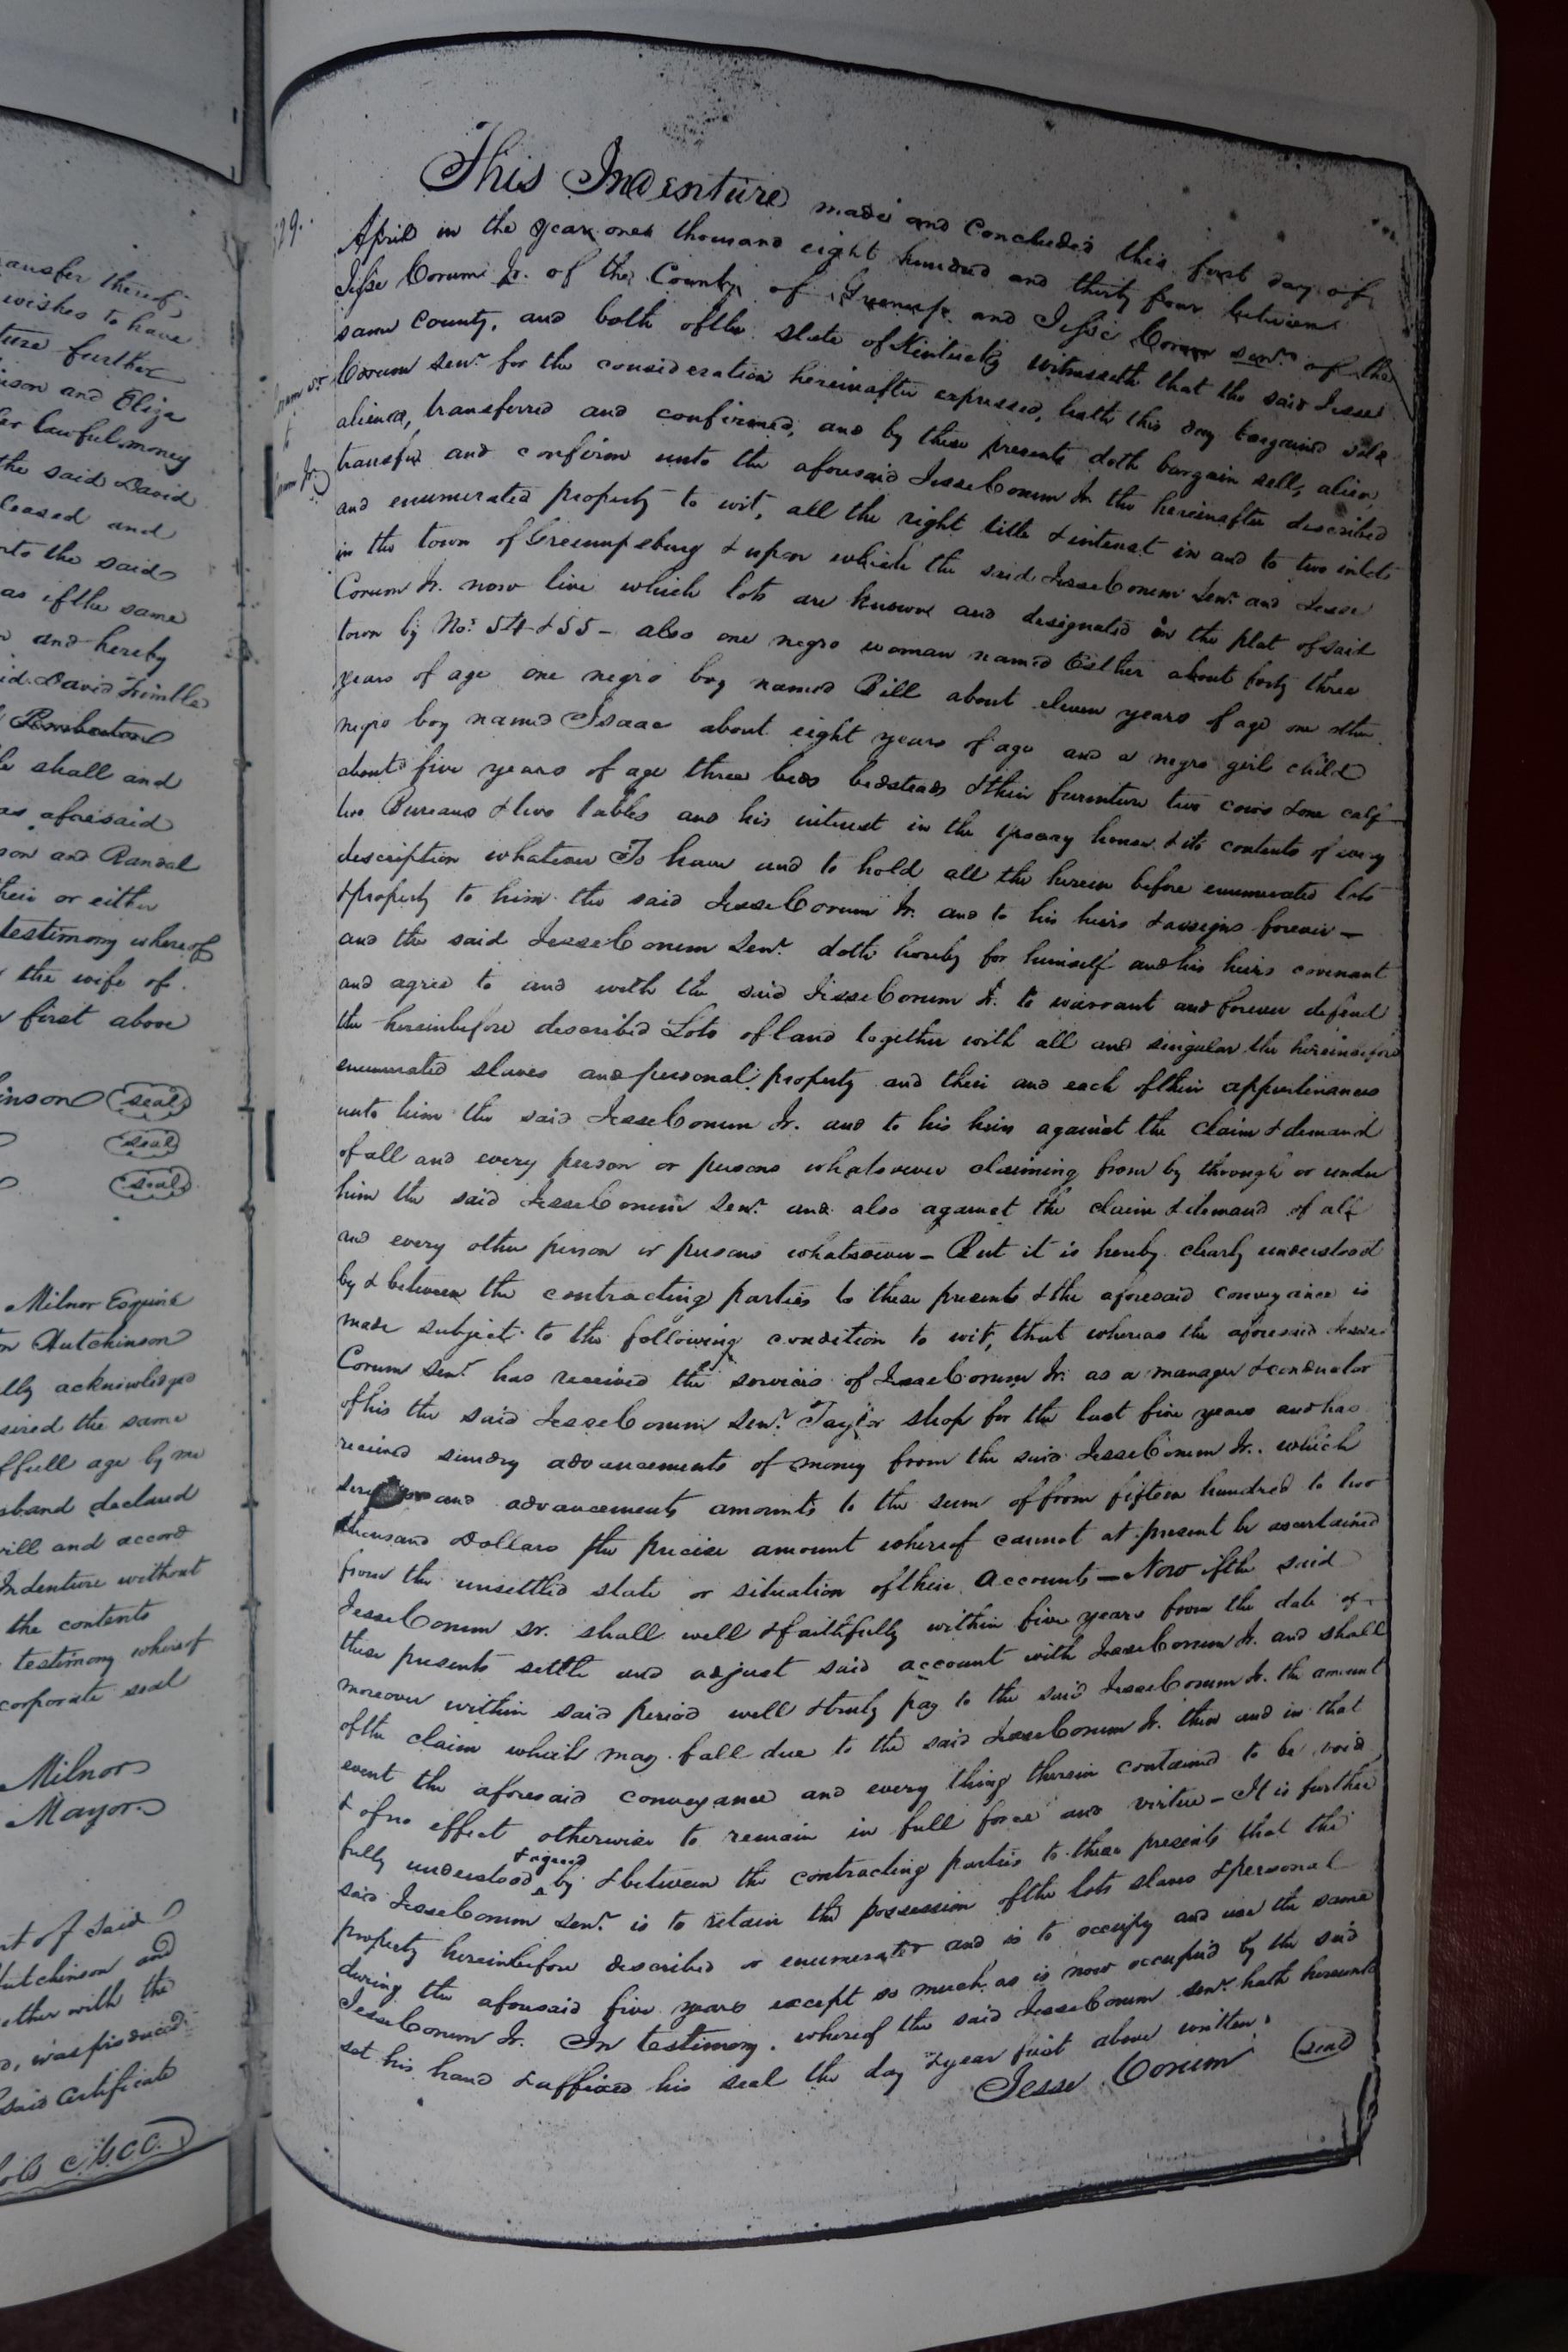 ansfer thereof
wishes to have
ture further
ison and Eliza
lawful money
the said David
leased and
nto the said
as if the same
and hereby
id David Trimble
Pemberton
shall and
as aforesaid
son and Randal
their or either
testimony whereof
the wife of
first above
inson seal
seal
seal
Milnor Esquire
n Hutchinson
lly acknowledged
sired the same
f full age by me
sband declared
will and accord
Indenture without
the contents
testimony whereof
corporate seal
Milnor
Mayor
nt of Said
Hutchinson and
ether with the
d, was produced
said Certificate
C.G.C.C.
This Indenture made and Concluded this first day of
April in the year one thousand eight hundred and thirty four between
Jesse Corum Jr. of the County of Greenup and Jesse Corum senr. of the
same County, and both of the state of Kentucky witnesseth that the said Jesse
Corum senr. for the consideration hereinafter expressed, hath this day bargained sold
aliened, transferred and confirmed, and by these presents doth bargain sell, alien,
transfer and confirm unto the aforesaid Jesse Corum Jr. the hereinafter described
and enumerated property to wit, all the right title & interest in and to two inlots
in the town of Greenupsburg & upon which the said Jesse Corum Senr. and Jesse
Corum Jr. now live which lots are known and designated in the plat of said
town by Nos. 54 & 55 - also one negro woman named Esther about forty three
years of age one negro boy named Bill about eleven years of age one other
negro boy named Isaac about eight years of age and a negro girl child
about five years of age three beds bedsteads & their furniture two cows & one calf
two Bureaus & two tables and his interest in the grocery house & its contents of every
description whatever To have and to hold all the herein before enumerated lots
& property to him the said Jesse Corum Jr. and to his heirs & assigns forever —
and the said Jesse Corum Senr. doth hereby for himself and his heirs covenant
and agree to and with the said Jesse Corum Jr. to warrant and forever defend
the hereinbefore described Lots of land together with all and singular the hereinbefore
enumerated slaves and personal property and their and each of their appurtenances
unto him the said Jesse Corum Jr. and to his heirs against the claim & demand
of all and every person or persons whatsoever claiming from by through or under
him the said Jesse Corum Senr. and also against the claim & demand of all
and every other person or persons whatsoever - But it is hereby clearly understood
by & between the contracting parties to these presents & the aforesaid conveyance is
made subject to the following condition to wit, that whereas the aforesaid Jesse
Corum Senr. has received the services of Jesse Corum Jr. as a manager & conductor
of his the said Jesse Corum Senr. Taylor shop for the last five years and has
received sundry advancements of money from the said Jesse Corum Jr. which
and advancements amounts to the sum of from fifteen hundred to two
thousand Dollars the precise amount whereof cannot at present be ascertained
from the unsettled state or situation of their accounts — Now if the said
Jesse Corum sr. shall well & faithfully within five years from the date of
these presents settle and adjust said account with Jesse Corum Jr. and shall
moreover within said period well & truly pay to the said Jesse Corum Jr. the amount
of the claim which may fall due to the said Jesse Corum Jr. then and in that
event the aforesaid conveyance and every thing therein contained to be void
& of no effect otherwise to remain in full force and virtue - It is further
fully understood & agreed by & between the contracting parties to these presents that the
said Jesse Corum Senr. is to retain the possession of the lots slaves & personal
property hereinbefore described or enumerated and is to occupy and use the same
during the aforesaid five years except so much as is now occupied by the said
Jesse Corum Jr. In testimony whereof the said Jesse Corum senr. hath hereunto
set his hand & affixed his seal the day & year first above written.
Jesse Corum seal